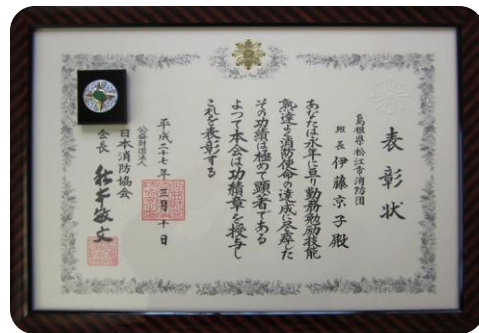 表彰状
島根県松江市消防団
班長 伊藤京子殿
あなたは永年に亘り勤務勉励技能
熟達よく消防使命の達成に尽瘁した
その功績は極めて顕著である
よつて本会は功績章を授与し
これを表彰する
平成二十七年三月十日
公益財団法人
日本消防協会
会長 秋本敏文